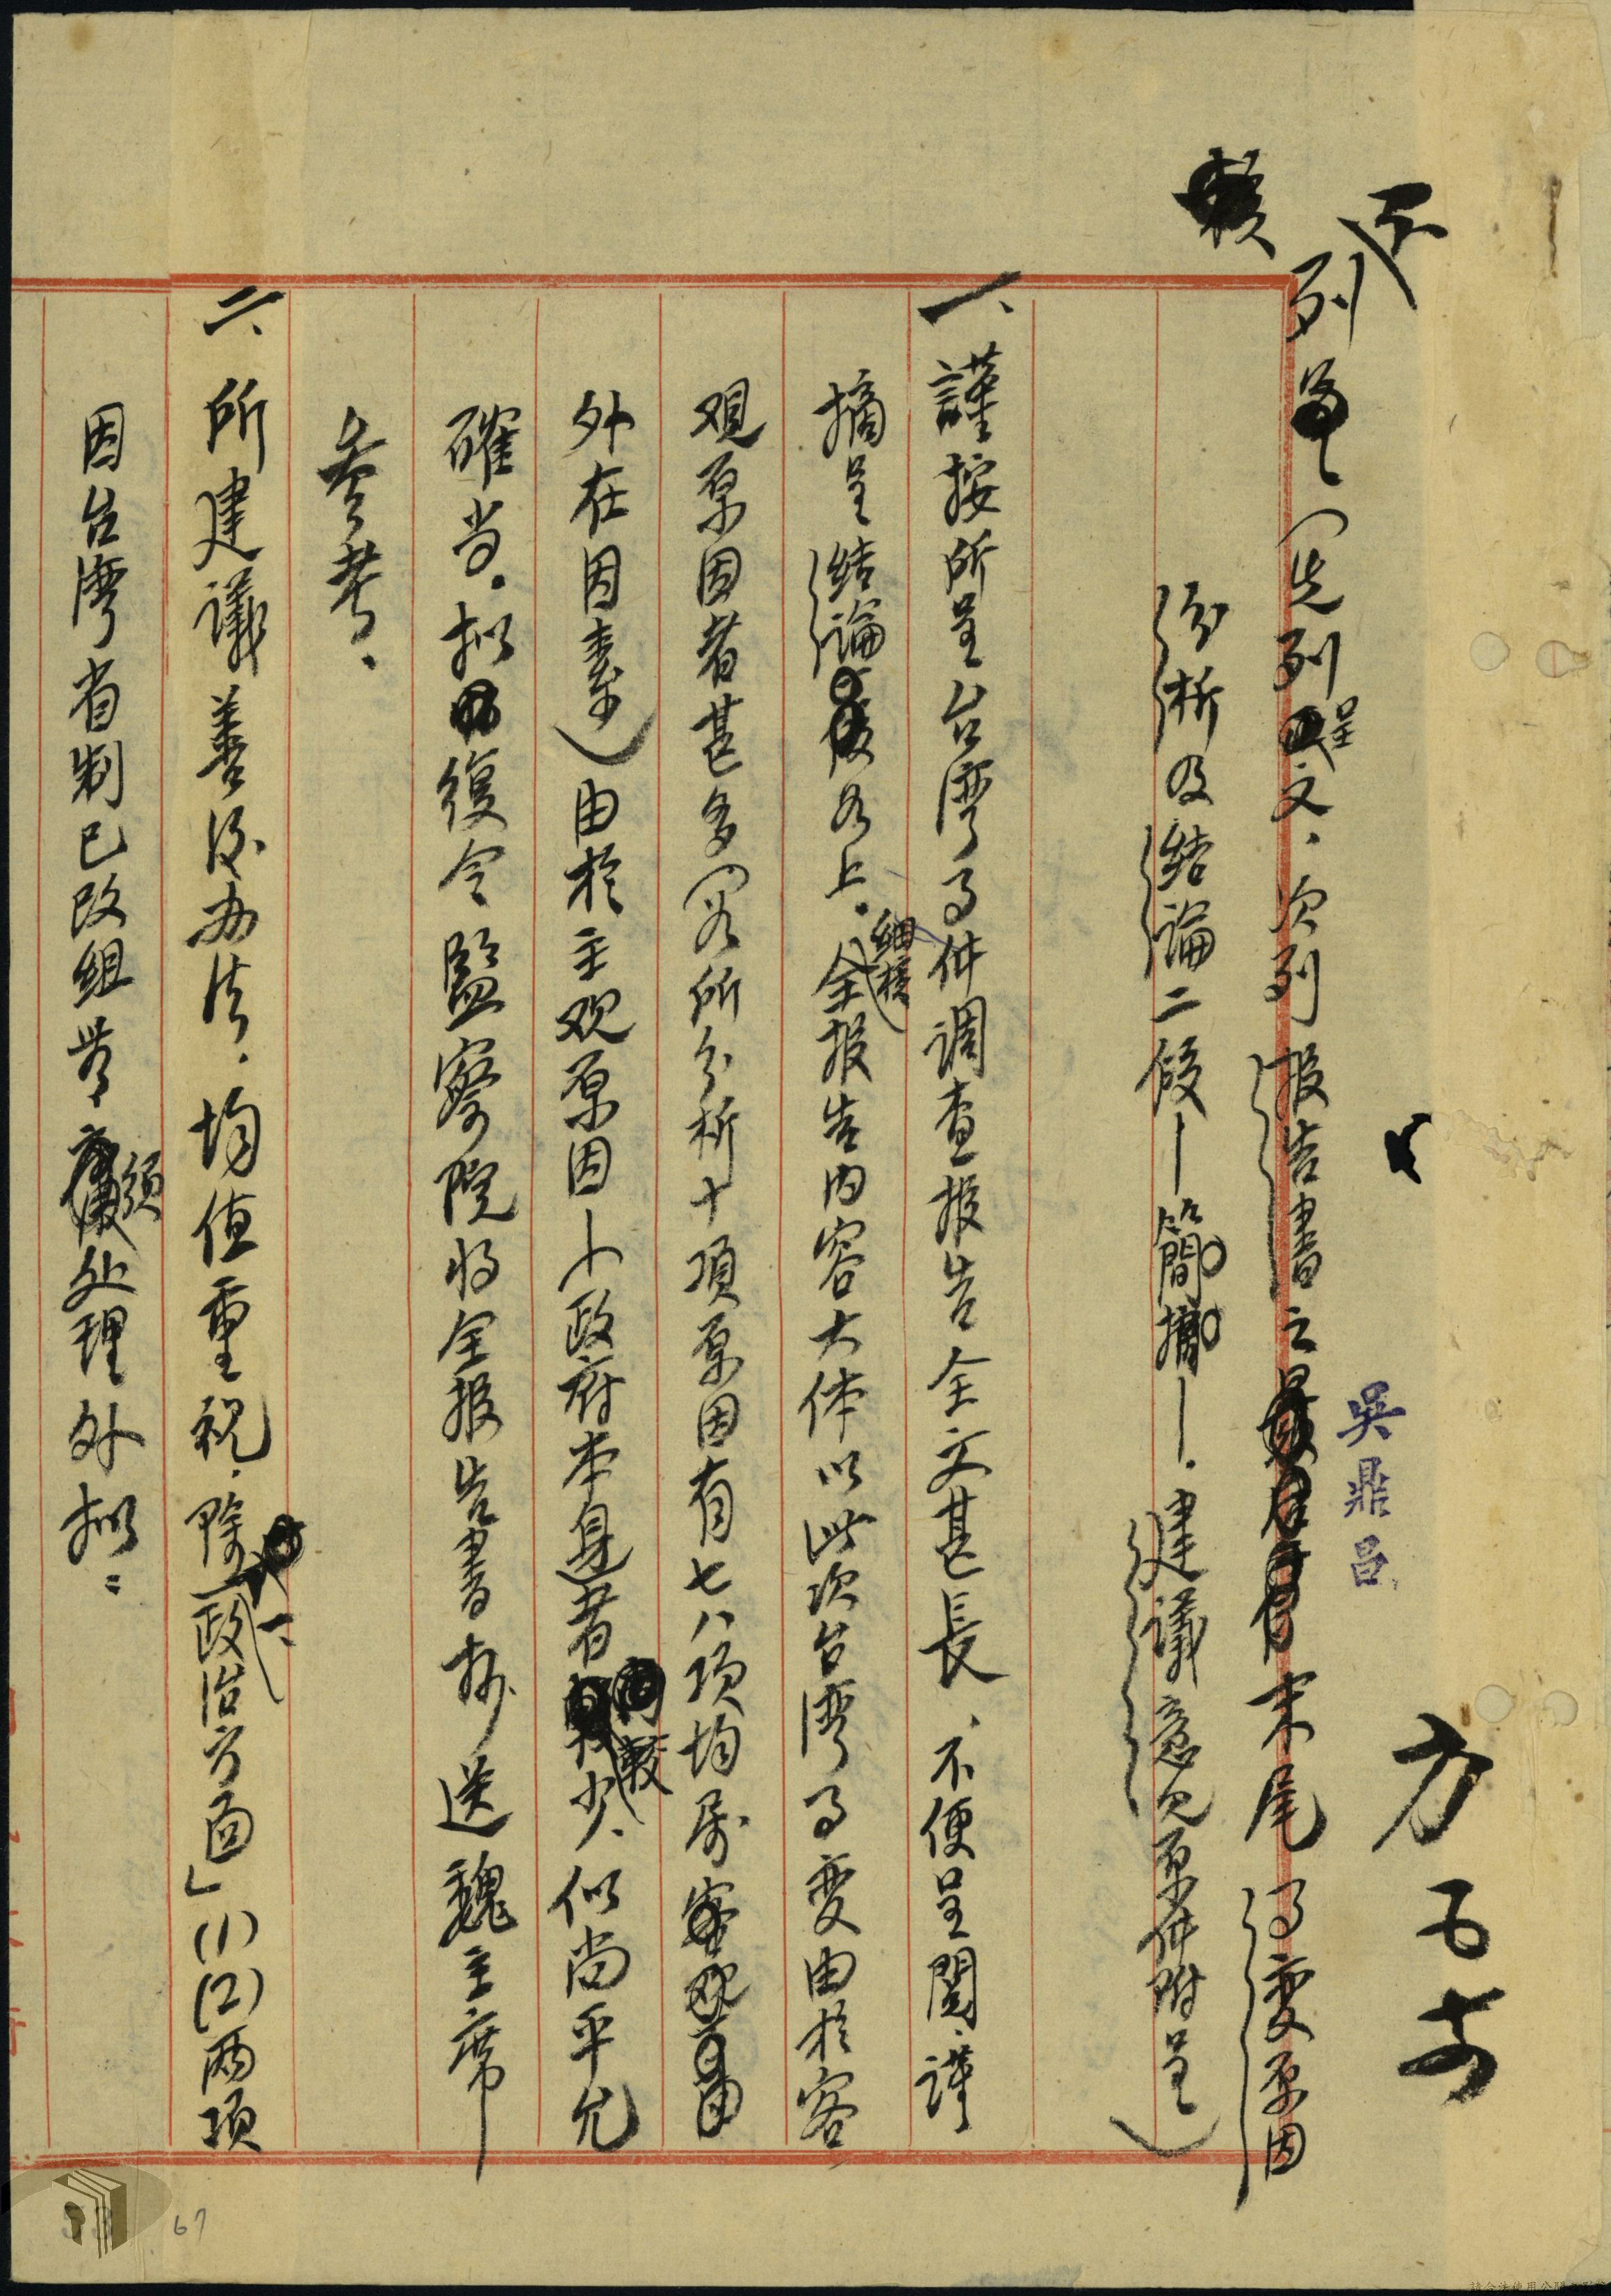 列
（先列呈文，次列報告書之末尾事变原因
分析及結論二段—簡摘—．建議意見原件附呈）
吳鼎昌
一、謹按所呈台灣事件調查報告全文甚長，不便呈閱，謹
摘呈結論如上．細核全報告內容大体以此次台灣事变由於客
观原因者甚多（如所分析十項原因有七八項均屬
外在因素）由於主观原因—政府本身者較少，似尚平允
確当．拟復令監察院将全報告書抄送魏主席
參考．
二、所建議善後办法，均值重視，除「一、政治方面」(1)(2)兩項
因台灣省制已改組，須处理外拟：
67